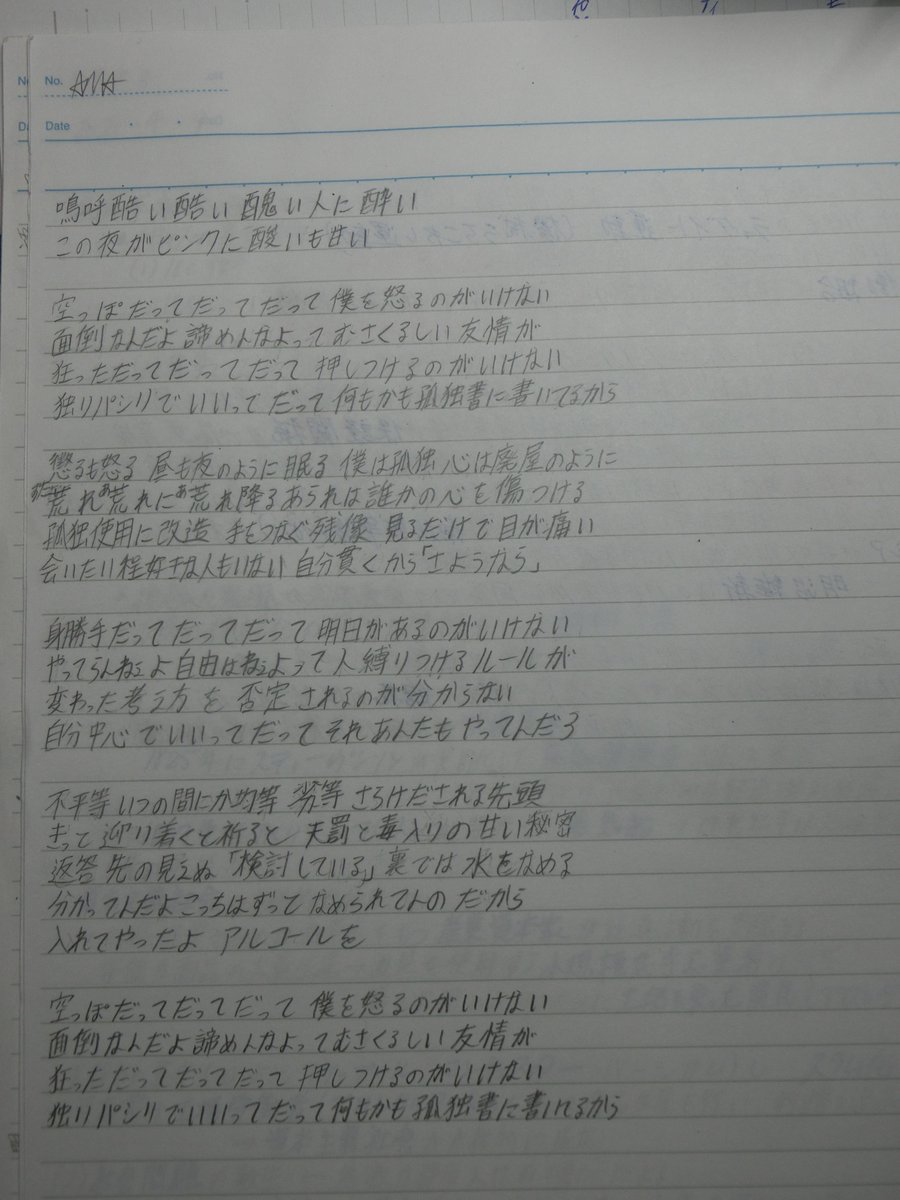 No. AMA
Date
嗚呼酷い酷い 醜い人に酔い
この夜がピンクに酸いも甘い
空っぽだってだってだって 僕を怒るのがいけない
面倒なんだよ諦めんなよってむさくるしい友情が
狂っただってだってだって 押しつけるのがいけない
独りパシリでいいってだって何もかも孤独書に書いてるから
懲るも怒る 昼も夜のように眠る 僕は孤独 心は廃屋のように
荒れ荒れに荒れ降るあられは誰かの心を傷つける
孤独使用に改造 手をつなぐ残像 見るだけで目が痛い
会いたい程好きな人もいない 自分貫くから「さようなら」
身勝手だってだってだって 明日があるのがいけない
やってらんねぇよ自由はねぇよって人縛りつけるルールが
変わった考え方を否定されるのが分からない
自分中心でいいってだってそれあんたもやってんだろ
不平等いつの間にか均等 劣等さらけだされる先頭
きっと辿り着くと祈ると 天罰と毒入りの甘い秘密
返答先の見えぬ「検討している」裏では水をなめる
分かってんだよこっちはずってなめられてんのだから
入れてやったよ アルコールを
空っぽだってだってだって 僕を怒るのがいけない
面倒なんだよ諦めんなよってむさくるしい友情が
狂っただってだってだって 押しつけるのがいけない
独りパシリでいいってだって何もかも孤独書に書いてるから